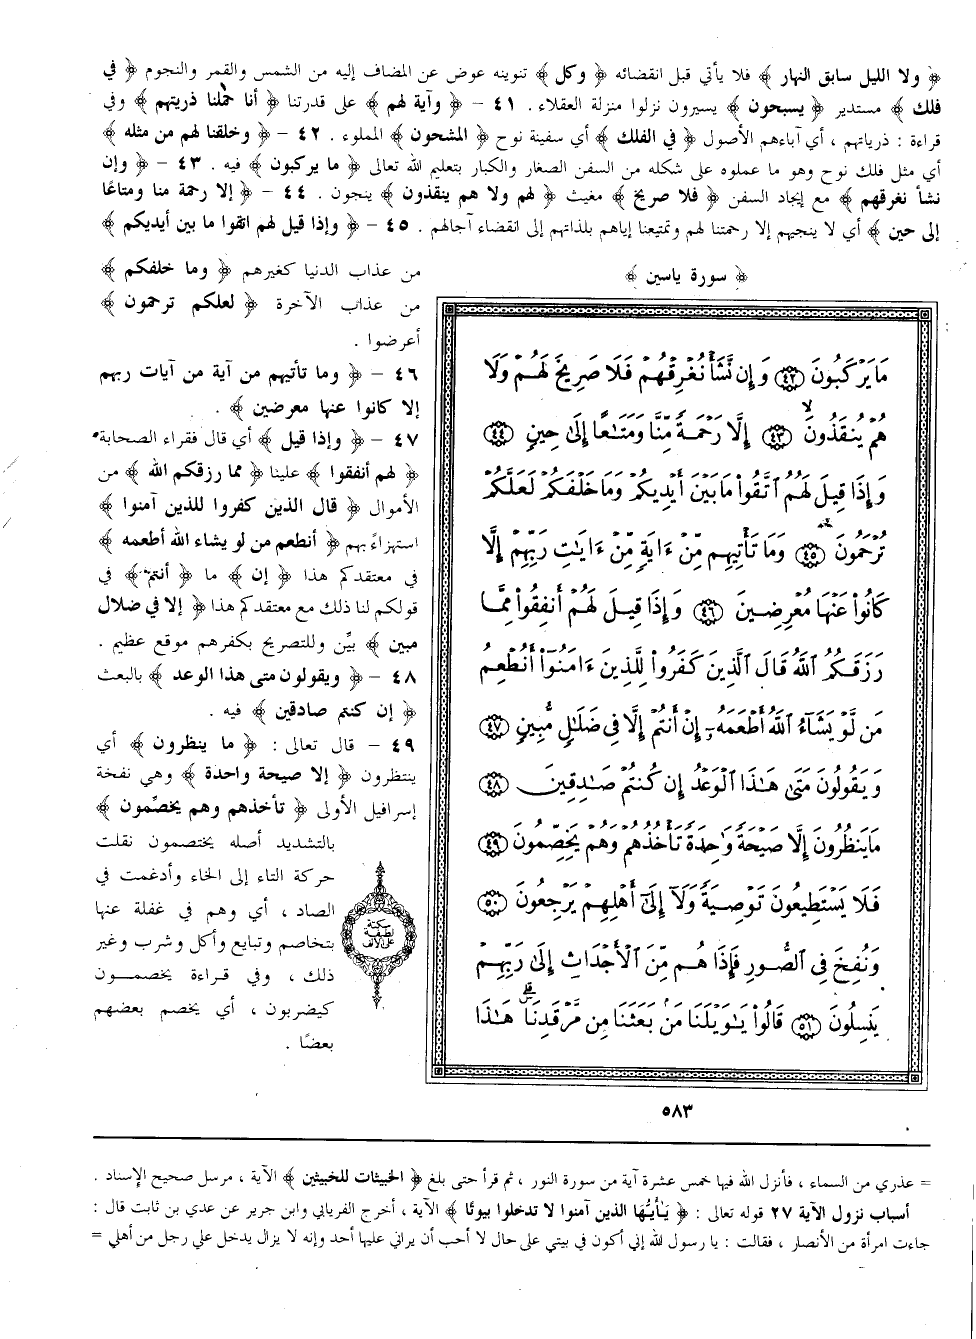 ﴿ ولا الليل سابق النهار ﴾ فلا يأتي قبل انقضائه ﴿ وكل ﴾ تنوينه عوض عن المضاف إليه من الشمس والقمر والنجوم ﴿ في
فلك ﴾ مستدير ﴿ يسبحون ﴾ يسيرون نزلوا منزلة العقلاء . ٤١ - ﴿ وآية لهم ﴾ على قدرتنا ﴿ أنا حملنا ذريتهم ﴾ وفي
قراءة : ذرياتهم ، أي آباءهم الأصول ﴿ في الفلك ﴾ أي سفينة نوح ﴿ المشحون ﴾ المملوء . ٤٢ - ﴿ وخلقنا لهم من مثله ﴾
أي مثل فلك نوح وهو ما عملوه على شكله من السفن الصغار والكبار بتعليم الله تعالى ﴿ ما يركبون ﴾ فيه . ٤٣ - ﴿ وإن
نشأ نغرقهم ﴾ مع إيجاد السفن ﴿ فلا صريخ ﴾ مغيث ﴿ لهم ولا هم ينقذون ﴾ ينجون . ٤٤ - ﴿ إلا رحمة منا ومتاعًا
إلى حين ﴾ أي لا ينجيهم إلا رحمتنا لهم وتمتيعنا إياهم بلذاتهم إلى انقضاء آجالهم . ٤٥ - ﴿ وإذا قيل لهم اتقوا ما بين أيديكم ﴾
﴿ سورة ياسين ﴾
مَا يَرْكَبُونَ ٤٢ وَإِن نَّشَأْ نُغْرِقْهُمْ فَلَا صَرِيخَ لَهُمْ وَلَا
هُمْ يُنقَذُونَ ٤٣ إِلَّا رَحْمَةً مِّنَّا وَمَتَٰعًا إِلَىٰ حِينٍ ٤٤
وَإِذَا قِيلَ لَهُمُ ٱتَّقُوا۟ مَا بَيْنَ أَيْدِيكُمْ وَمَا خَلْفَكُمْ لَعَلَّكُمْ
تُرْحَمُونَ ٤٥ وَمَا تَأْتِيهِم مِّنْ ءَايَةٍ مِّنْ ءَايَٰتِ رَبِّهِمْ إِلَّا
كَانُوا۟ عَنْهَا مُعْرِضِينَ ٤٦ وَإِذَا قِيلَ لَهُمْ أَنفِقُوا۟ مِمَّا
رَزَقَكُمُ ٱللَّهُ قَالَ ٱلَّذِينَ كَفَرُوا۟ لِلَّذِينَ ءَامَنُوٓا۟ أَنُطْعِمُ
مَن لَّوْ يَشَآءُ ٱللَّهُ أَطْعَمَهُۥٓ إِنْ أَنتُمْ إِلَّا فِى ضَلَٰلٍ مُّبِينٍ ٤٧
وَيَقُولُونَ مَتَىٰ هَٰذَا ٱلْوَعْدُ إِن كُنتُمْ صَٰدِقِينَ ٤٨
مَا يَنظُرُونَ إِلَّا صَيْحَةً وَٰحِدَةً تَأْخُذُهُمْ وَهُمْ يَخِصِّمُونَ ٤٩
فَلَا يَسْتَطِيعُونَ تَوْصِيَةً وَلَآ إِلَىٰٓ أَهْلِهِمْ يَرْجِعُونَ ٥٠
وَنُفِخَ فِى ٱلصُّورِ فَإِذَا هُم مِّنَ ٱلْأَجْدَاثِ إِلَىٰ رَبِّهِمْ
يَنسِلُونَ ٥١ قَالُوا۟ يَٰوَيْلَنَا مَنۢ بَعَثَنَا مِن مَّرْقَدِنَا ۗ هَٰذَا
٥٨٣
من عذاب الدنيا كغيرهم ﴿ وما خلفكم ﴾
من عذاب الآخرة ﴿ لعلكم ترحمون ﴾
أعرضوا .
٤٦ - ﴿ وما تأتيهم من آية من آيات ربهم
إلا كانوا عنها معرضين ﴾ .
٤٧ - ﴿ وإذا قيل ﴾ أي قال فقراء الصحابة
﴿ لهم أنفقوا ﴾ علينا ﴿ مما رزقكم الله ﴾ من
الأموال ﴿ قال الذين كفروا للذين آمنوا ﴾
استهزاءً بهم ﴿ أنطعم من لو يشاء الله أطعمه ﴾
في معتقدكم هذا ﴿ إن ﴾ ما ﴿ أنتم ﴾ في
قولكم لنا ذلك مع معتقدكم هذا ﴿ إلا في ضلال
مبين ﴾ بيِّن وللتصريح بكفرهم موقع عظيم .
٤٨ - ﴿ ويقولون متى هذا الوعد ﴾ بالبعث
﴿ إن كنتم صادقين ﴾ فيه .
٤٩ - قال تعالى : ﴿ ما ينظرون ﴾ أي
ينتظرون ﴿ إلا صيحة واحدة ﴾ وهي نفخة
إسرافيل الأولى ﴿ تأخذهم وهم يخصِّمون ﴾
بالتشديد أصله يختصمون نقلت
حركة التاء إلى الخاء وأدغمت في
الصاد ، أي وهم في غفلة عنها
بتخاصم وتبايع وأكل وشرب وغير
ذلك ، وفي قراءة يخصمون
كيضربون ، أي يخصم بعضهم
بعضًا .
سكتة
لطيفة
على الألف
= عذري من السماء ، فأنزل الله فيها خمس عشرة آية من سورة النور ، ثم قرأ حتى بلغ ﴿ الخبيثات للخبيثين ﴾ الآية ، مرسل صحيح الإسناد .
أسباب نزول الآية ٢٧ قوله تعالى : ﴿ يـٰأيها الذين آمنوا لا تدخلوا بيوتًا ﴾ الآية ، أخرج الفريابي وابن جرير عن عدي بن ثابت قال :
جاءت امرأة من الأنصار ، فقالت : يا رسول الله إني أكون في بيتي على حال لا أحب أن يراني عليها أحد وإنه لا يزال يدخل علي رجل من أهلي =